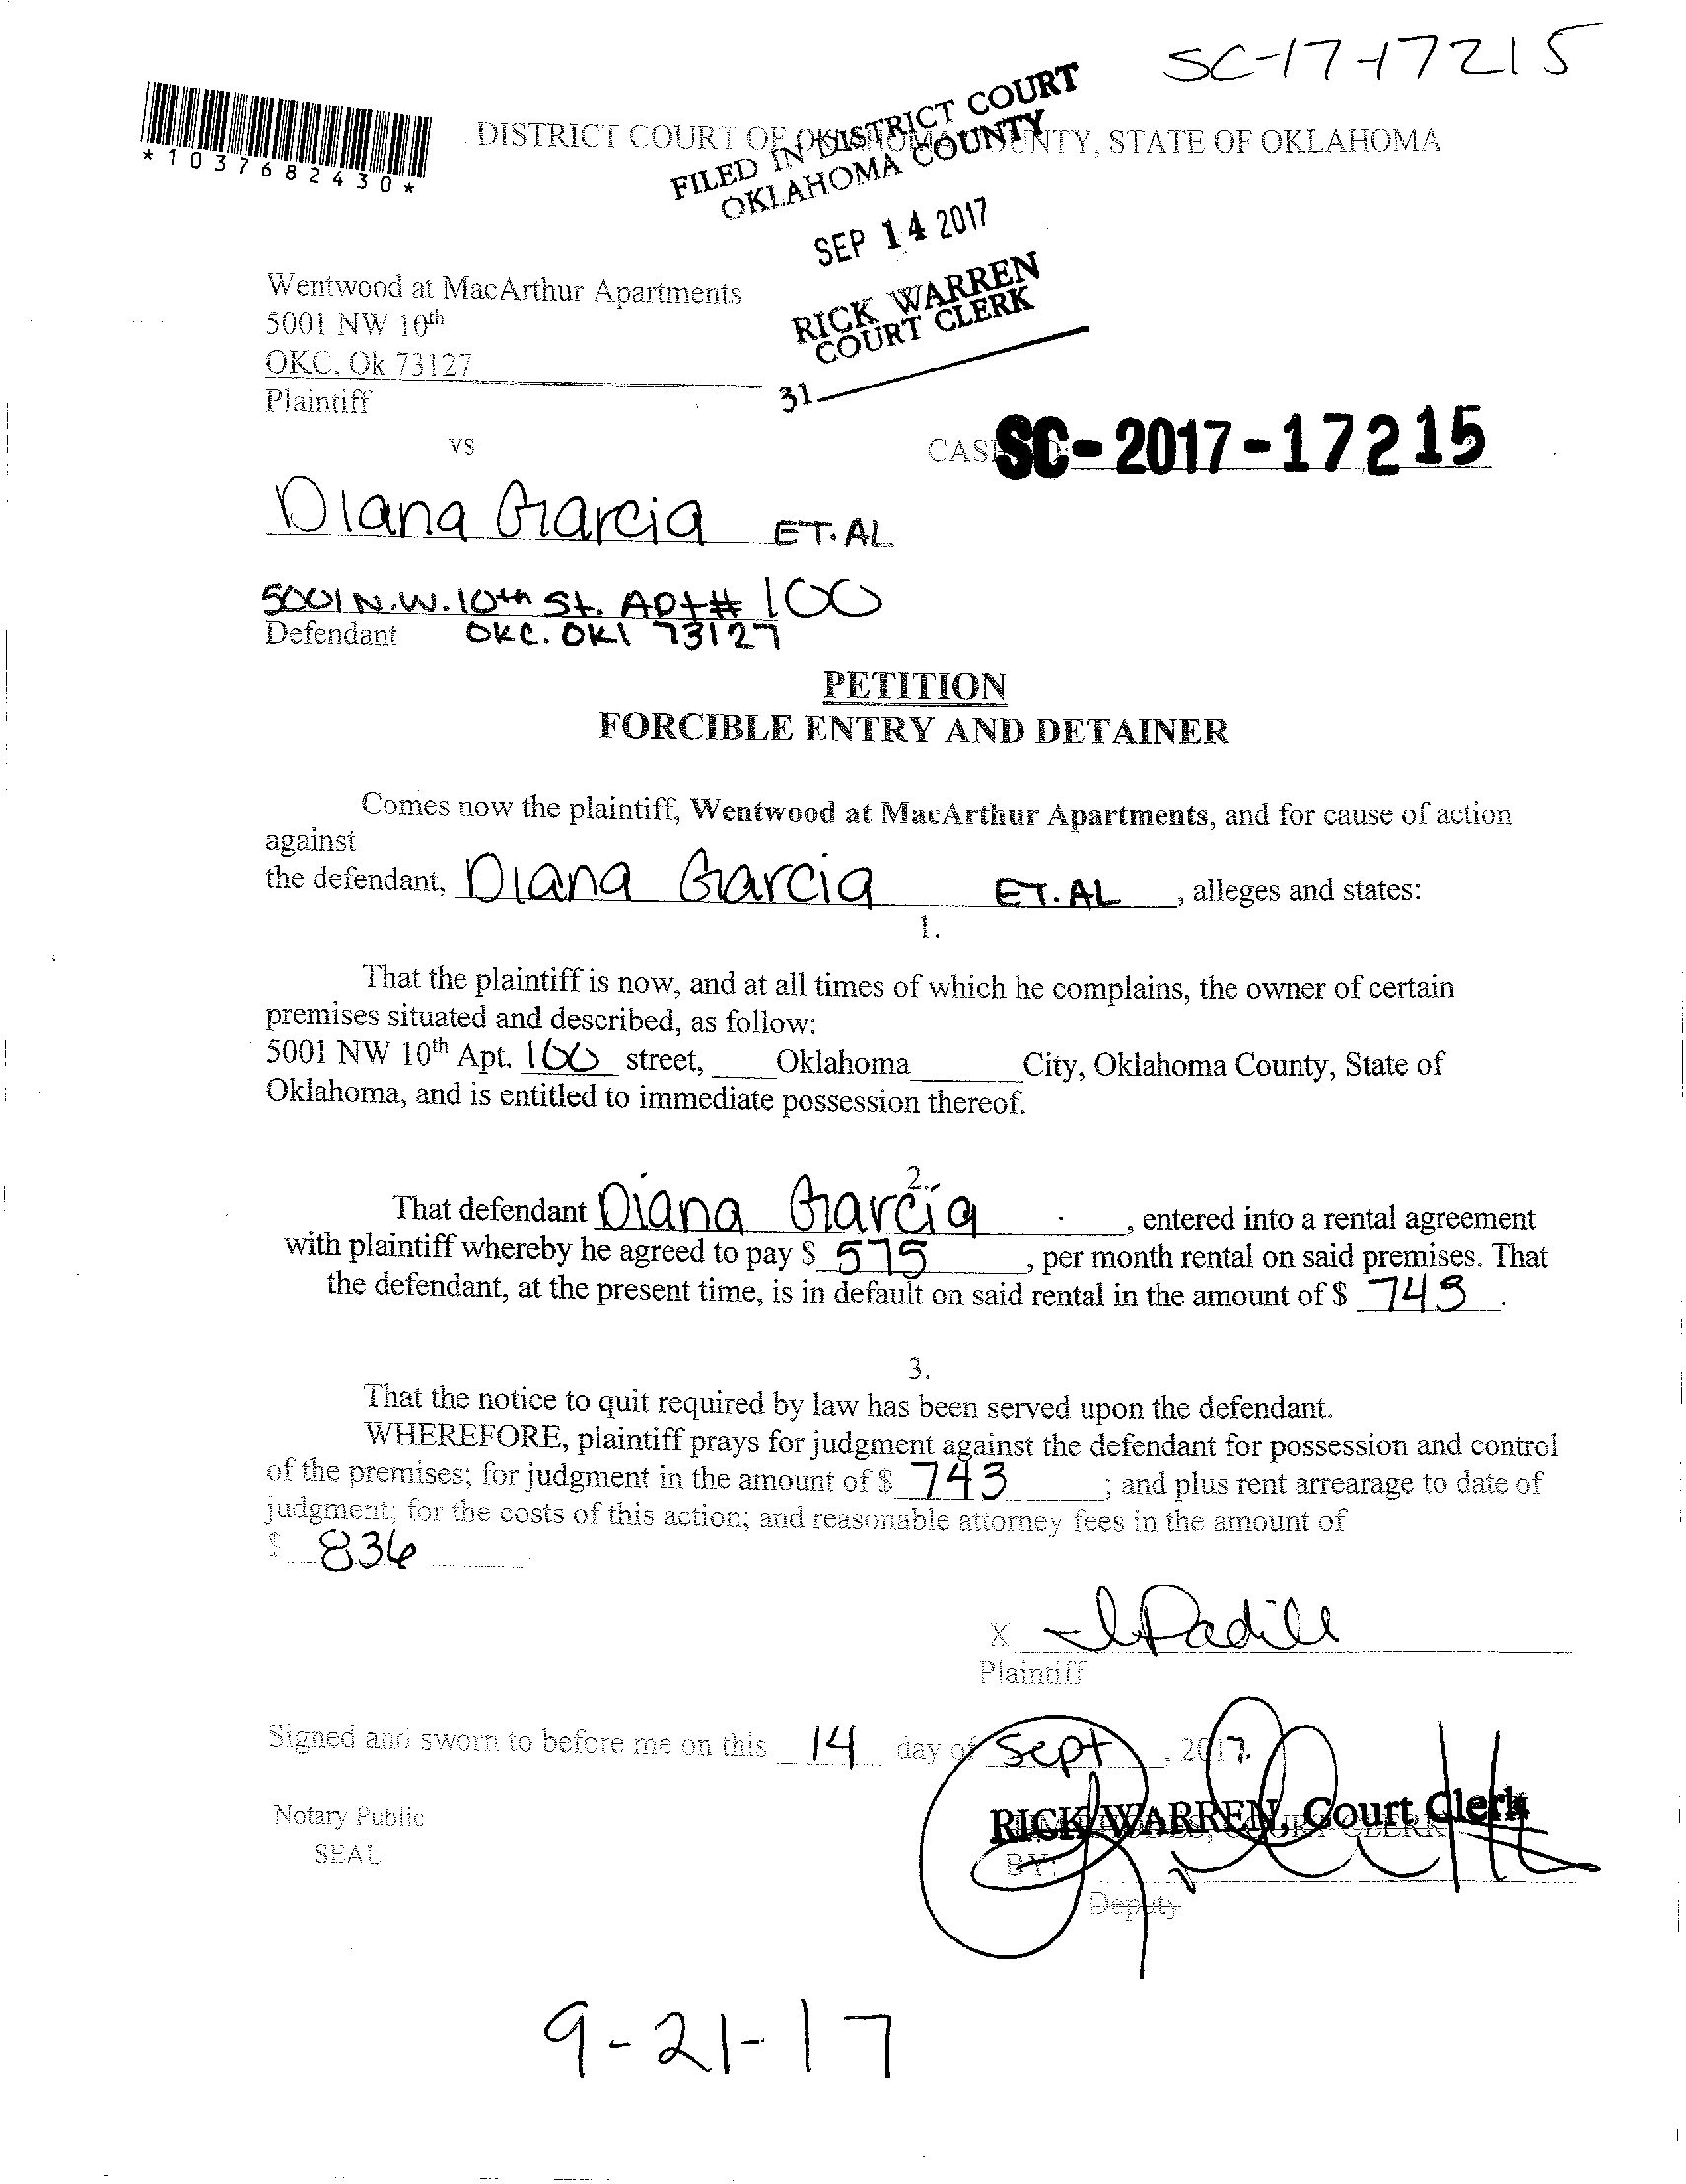 SC-17-17215
*1037682430*
DISTRICT COURT OF OKLAHOMA COUNTY, STATE OF OKLAHOMA
FILED IN DISTRICT COURT
OKLAHOMA COUNTY
SEP 14 2017
RICK WARREN
COURT CLERK
31
Wentwood at MacArthur Apartments
5001 NW 10th
OKC, Ok 73127
Plaintiff
vs
CAS SC-2017-17215
Diana Garcia ET.AL
5001 N.W. 10th St. Apt# 100
Defendant OKC. OKl 73127
PETITION
FORCIBLE ENTRY AND DETAINER
Comes now the plaintiff, Wentwood at MacArthur Apartments, and for cause of action
against
the defendant, Diana Garcia ET.AL, alleges and states:
1.
That the plaintiff is now, and at all times of which he complains, the owner of certain
premises situated and described, as follow:
5001 NW 10th Apt. 100 street, Oklahoma City, Oklahoma County, State of
Oklahoma, and is entitled to immediate possession thereof.
2.
That defendant Diana Garcia, entered into a rental agreement
with plaintiff whereby he agreed to pay $ 575, per month rental on said premises. That
the defendant, at the present time, is in default on said rental in the amount of $ 743.
3.
That the notice to quit required by law has been served upon the defendant.
WHEREFORE, plaintiff prays for judgment against the defendant for possession and control
of the premises; for judgment in the amount of $ 743; and plus rent arrearage to date of
judgment; for the costs of this action; and reasonable attorney fees in the amount of
$ 836
X
Plaintiff
Signed and sworn to before me on this 14 day of Sept, 2017.
Notary Public
SEAL
RICK WARREN, Court Clerk
COURT CLERK
BY:
Deputy
9-21-17